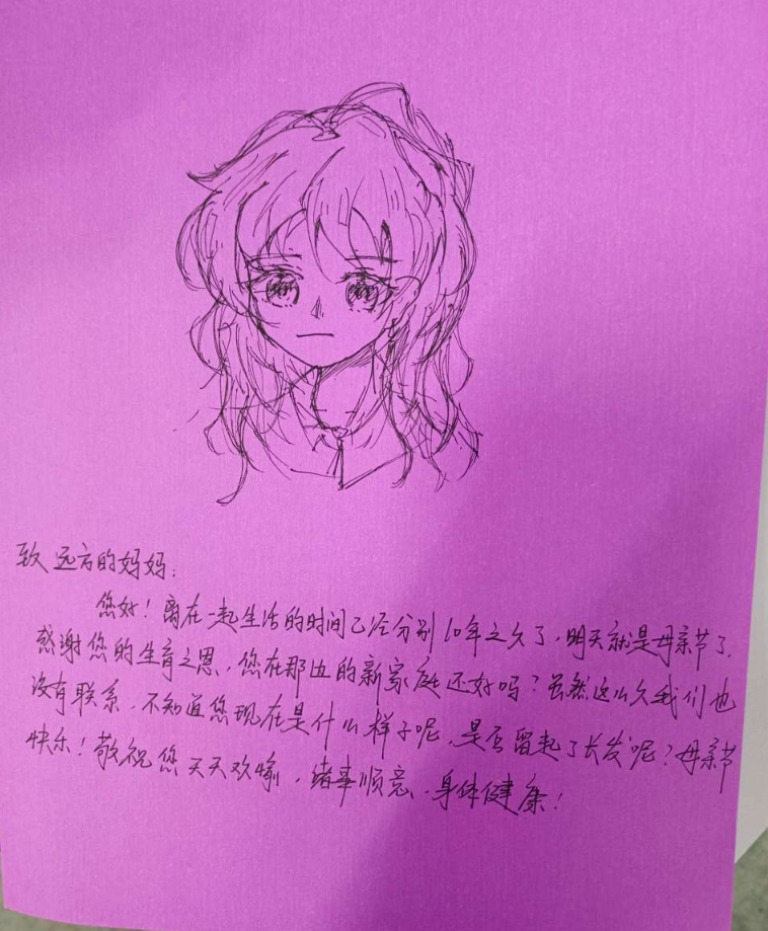 致远方的妈妈：
您好！离在一起生活的时间已经分别10年之久了，明天就是母亲节了，
感谢您的生育之恩，您在那边的新家庭还好吗？虽然这么久我们也
没有联系，不知道您现在是什么样子呢，是否留起了长发呢？母亲节
快乐！敬祝您天天欢愉，诸事顺意，身体健康！